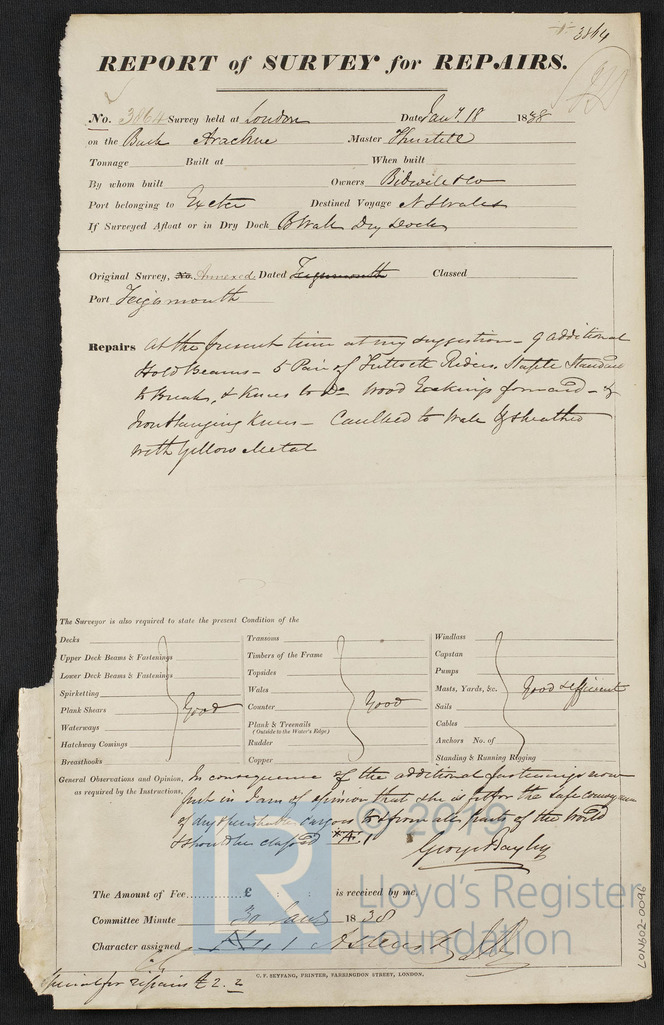 3864
REPORT of SURVEY for REPAIRS.
No. 3864 Survey held at London Date Jany. 18 1838
on the Bark Arachne Master
Tonnage Built at When built
By whom built Owners Bidwill & Co
Port belonging to Exeter Destined Voyage N S Wales
If Surveyed Afloat or in Dry Dock B Wall Dry Dock
Original Survey, No. Annexed Dated Teignmouth Classed
Port Teignmouth
Repairs At the present time at my suggestion - 9 additional
Hold Beams - 5 Pair of Futtock Riders, Staple Standard
to Breaks, & Knees to Do Wood Ekeings forward - &
Iron hanging Knees - Caulked to Wale & sheathed
with Yellow Metal
The Surveyor is also required to state the present Condition of the
Decks Transoms Windlass
Upper Deck Beams & Fastenings Timbers of the Frame Capstan
Lower Deck Beams & Fastenings Topsides Pumps
Spirketting Wales Masts, Yards, &c. Good & efficient
Plank Shears Good Counter Good Sails
Waterways Plank & Treenails Cables
(Outside to the Water's Edge)
Hatchway Comings Rudder Anchors No. of
Breasthooks Copper Standing & Running Rigging
General Observations and Opinion, In consequence of the additional fastenings now
as required by the Instructions, put in I am of opinion that she is fit for the safe conveyance
of dry & perishable cargoes to & from all parts of the World
& should be classed *A. 1
George Bayley
The Amount of Fee £ : : is received by me,
Committee Minute 30 Jany 1838
Character assigned
Special for repairs £2. 2
C. F. SEYFANG, PRINTER, FARRINGDON STREET, LONDON.
LON602-0096
© 2019
LR
Lloyd's Register
Foundation